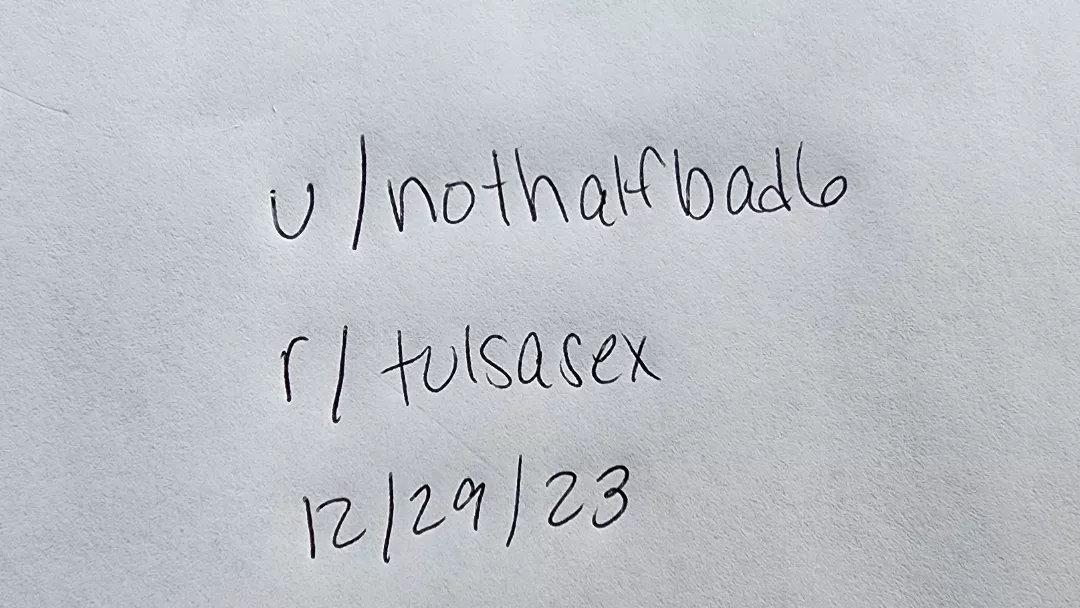 u/nothalfbad6
r/tulsasex
12/29/23